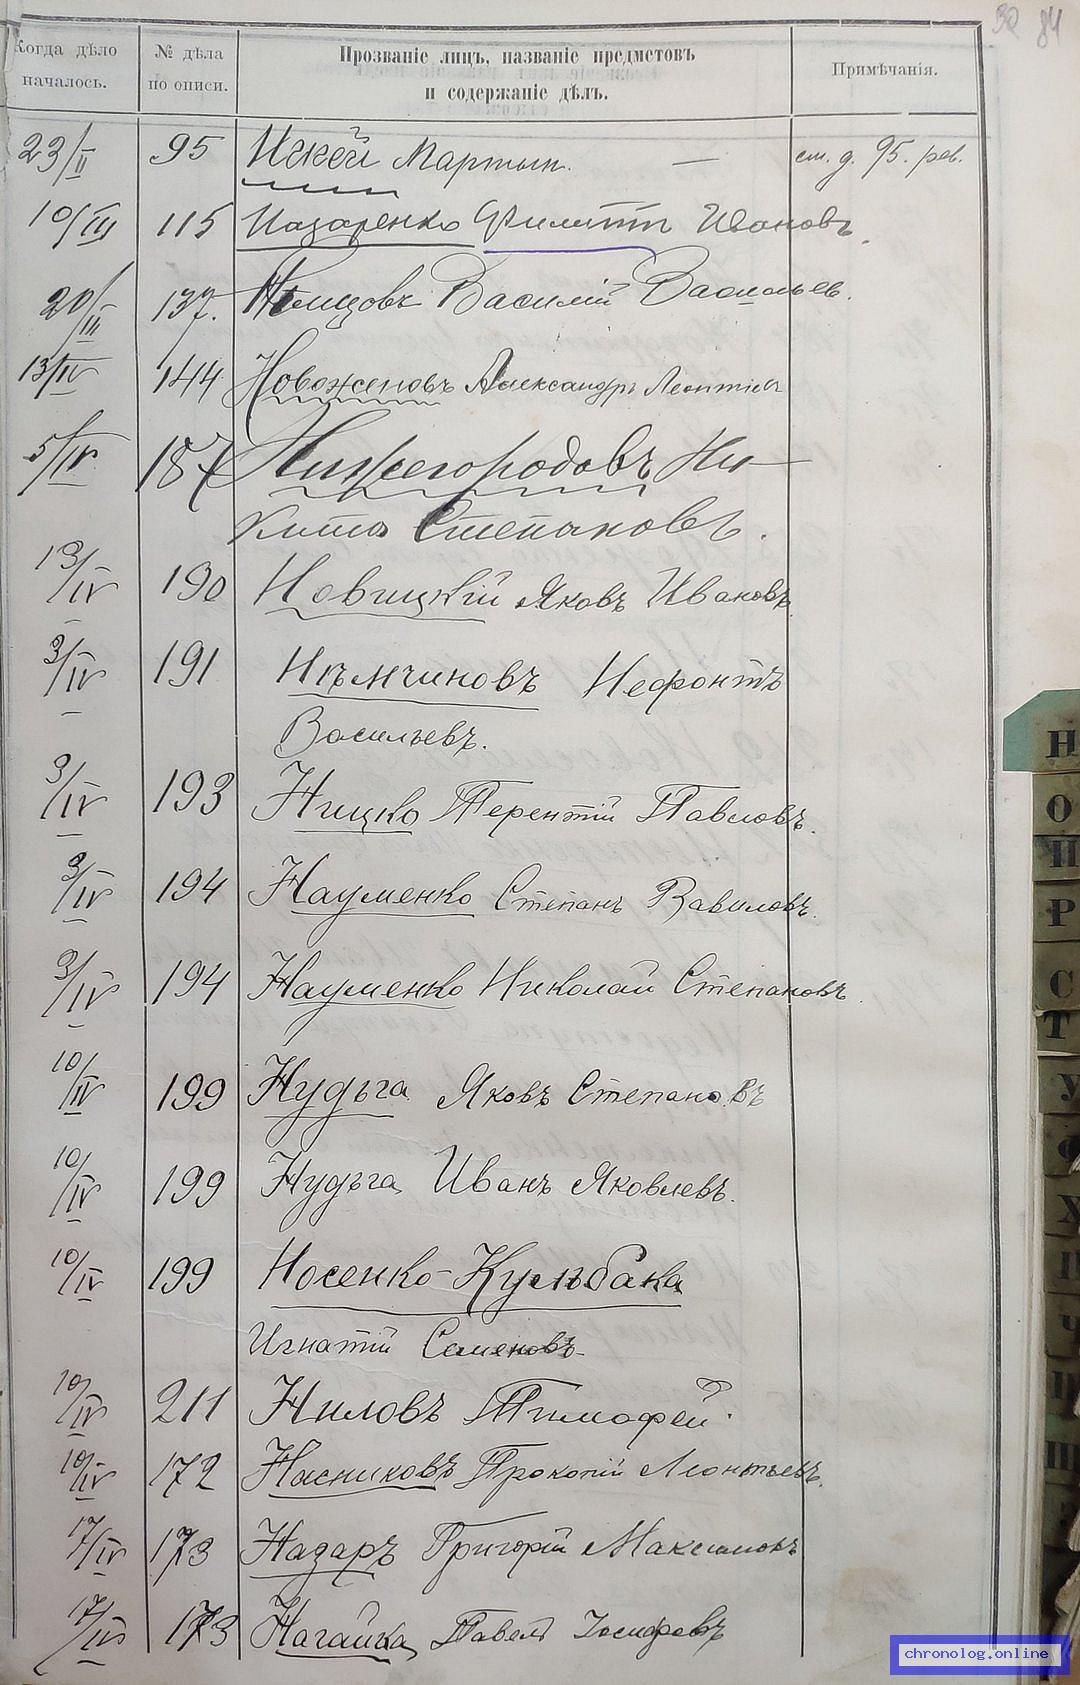 30 84
Когда дѣло началось.
№ дѣла по описи.
Прозваніе лицъ, названіе предметовъ и содержаніе дѣлъ.
Примѣчанія.
23/II 95 Мартын. — см. д. 95. рев.
10/III 115 Назаренко Филиппъ Ивановъ.
20/III 137. Нѣмцовъ Василій Васильев.
13/IV 144 Новоженовъ Александръ Леонтіев
5/IV 187 Нижегородовъ Ни-
кита Степановъ.
13/IV 190 Новицкій Яковъ Ивановъ.
3/IV 191 Нѣмчиновъ Неофонтъ
Васильевъ.
3/IV 193 Ницко Терентій Павловъ.
3/IV 194 Науменко Степанъ Вавиловъ.
3/IV 194 Науменко Николай Степановъ.
10/IV 199 Нудьга Яковъ Степановъ
10/IV 199 Нудьга Иванъ Яковлевъ.
10/IV 199 Носенко-Кульбака
Игнатій Семеновъ.
10/IV 211 Ниловъ Тимофей.
10/IV 172 Насниковъ Прокопій Леонтьевъ.
17/IV 173 Надаръ Григорій Максимовъ
17/IV 173 Нагайка Павелъ Іосифовъ
Н
О
П
Р
С
Т
У
Ф
Х
Ц
Ч
Ш
chronolog.online